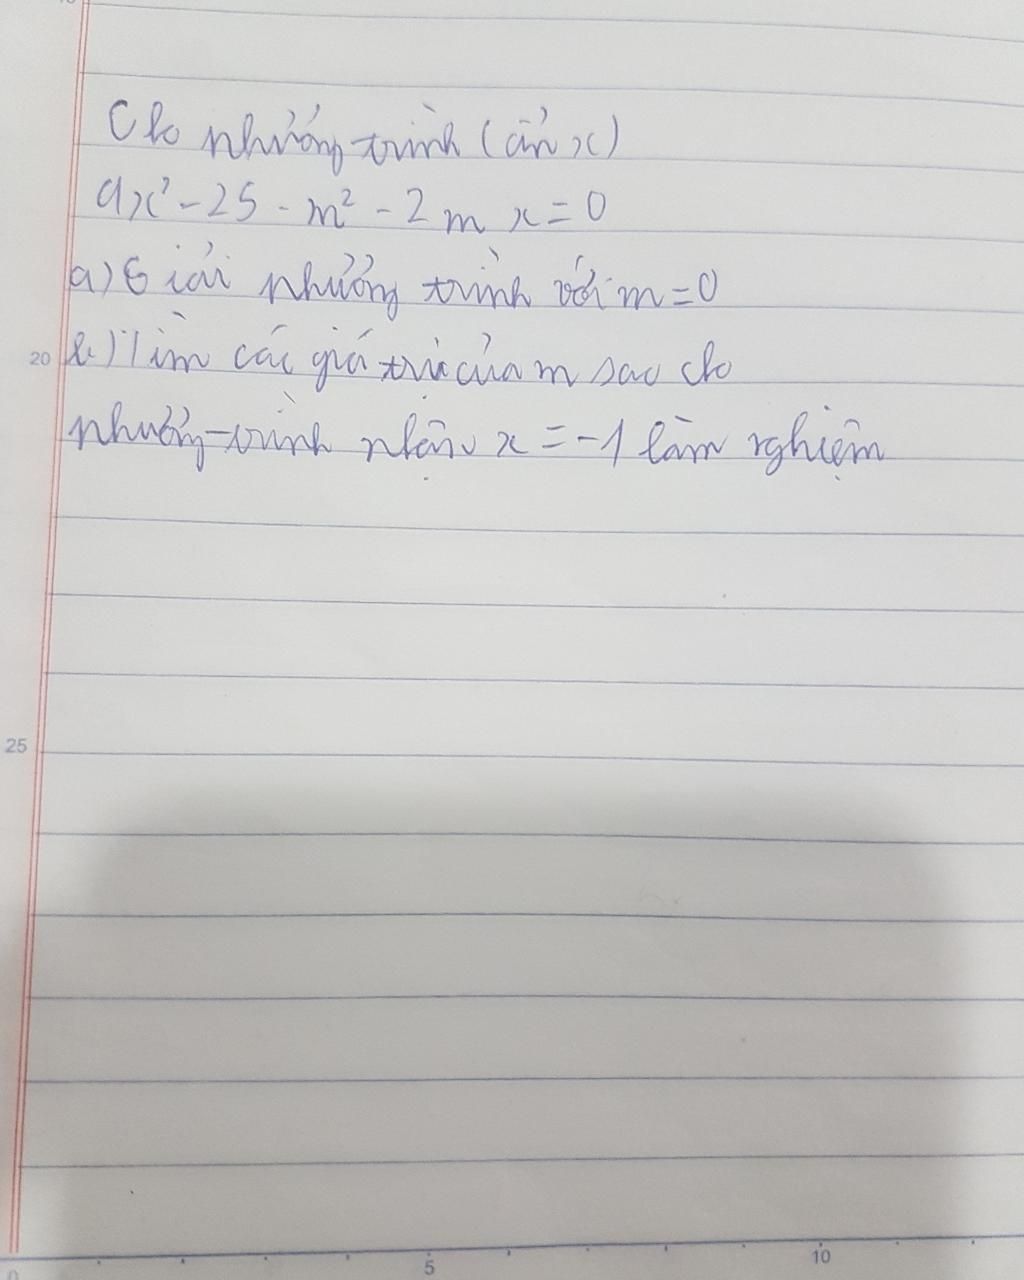 Cho phương trình (ẩn x)
9x² - 25 - m² - 2mx = 0
a) Giải phương trình với m = 0
b) Tìm các giá trị của m sao cho
phương trình nhận x = -1 làm nghiệm
20
25
0 5 10